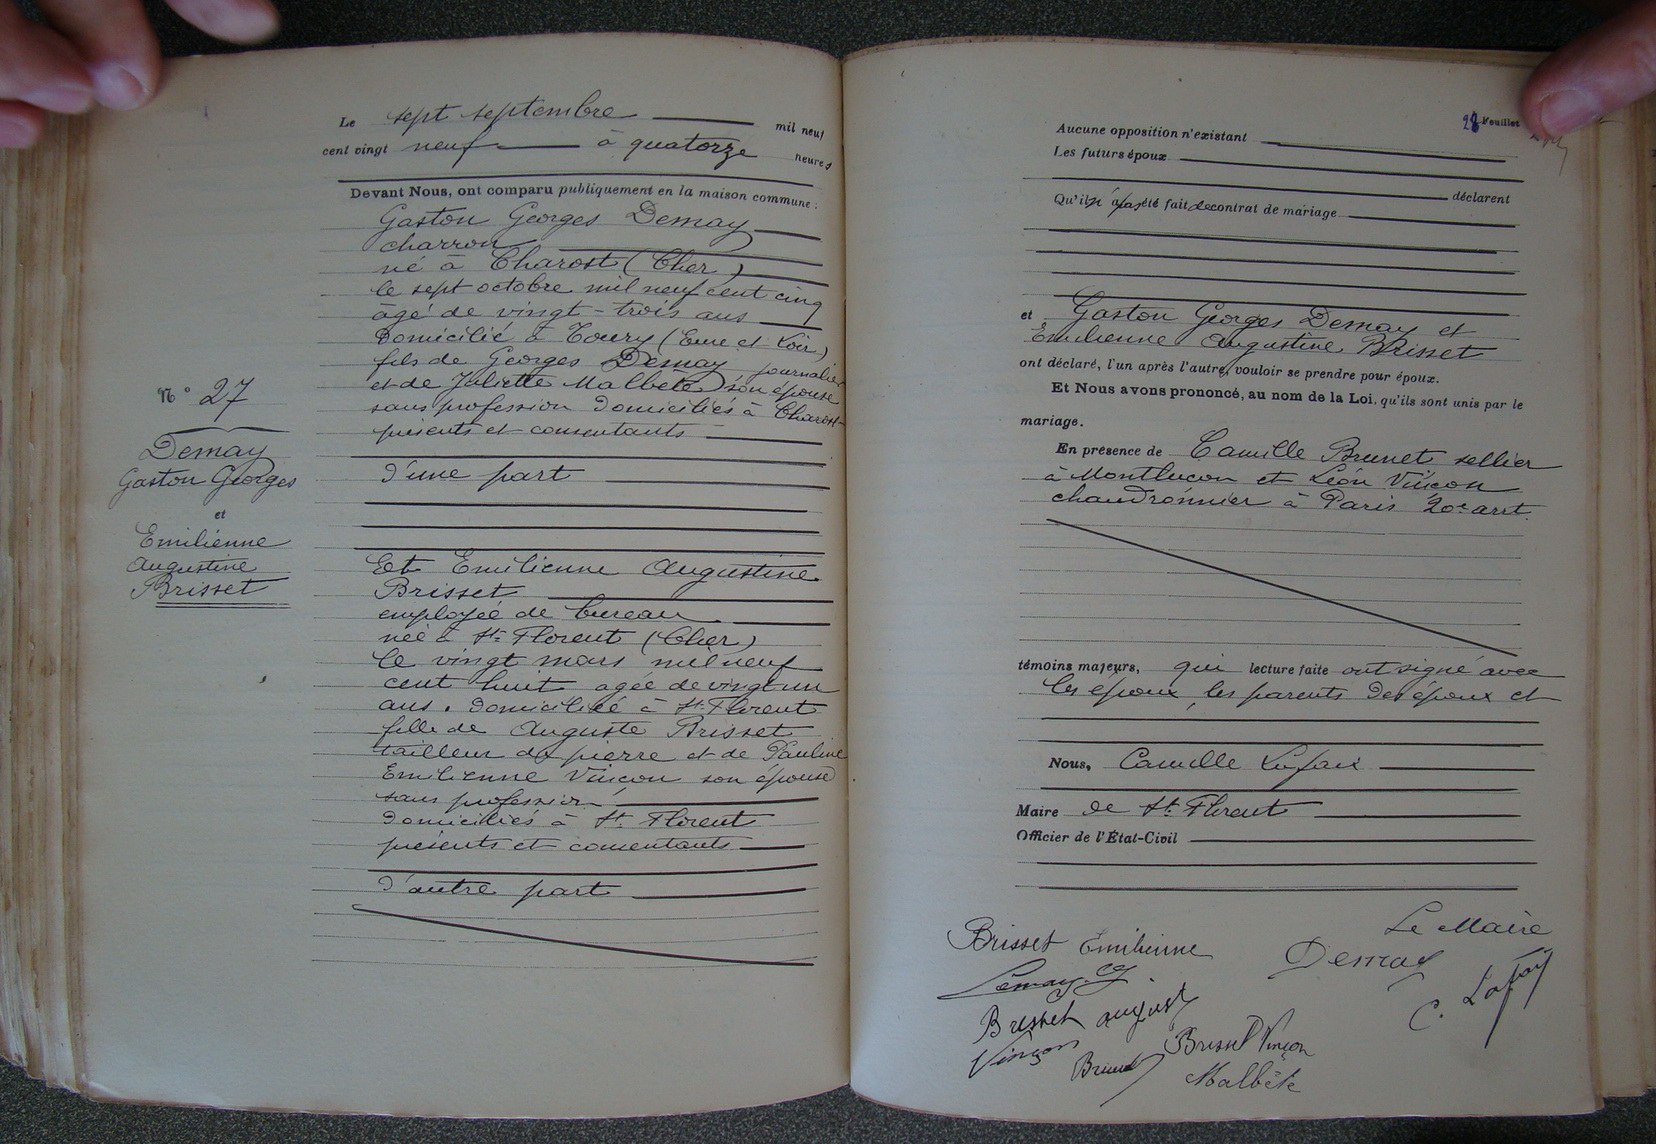 Le sept septembre mil neuf
cent vingt neuf à quatorze heures
Devant Nous, ont comparu publiquement en la maison commune :
Gaston Georges Demay
charron
né à Charost (Cher)
le sept octobre mil neuf cent cinq
âgé de vingt-trois ans
domicilié à Toury (Eure et Loir)
fils de Georges Demay journalier
et de Juliette Malbète son épouse
sans profession domiciliés à Charost
présents et consentants
d'une part
N° 27
Demay
Gaston Georges
et
Emilienne
Augustine
Brisset
Et Emilienne Augustine
Brisset
employée de bureau
née à St Florent (Cher)
le vingt mars mil neuf
cent huit agée de vingt un
ans. domiciliée à St Florent
fille de Auguste Brisset
tailleur de pierre et de Pauline
Emilienne Vinçon son épouse
sans profession
domiciliés à St Florent
présents et consentants
d'autre part
28 Feuillet
Aucune opposition n'existant
Les futurs époux
déclarent
Qu'il n'a pas été fait de contrat de mariage
et Gaston Georges Demay et
Emilienne Augustine Brisset
ont déclaré, l'un après l'autre, vouloir se prendre pour époux.
Et Nous avons prononcé, au nom de la Loi, qu'ils sont unis par le
mariage.
En présence de Camille Brunet sellier
à Montlucon et Léon Vinçon
chaudronnier à Paris 20e arrt
témoins majeurs, qui lecture faite ont signé avec
les époux, les parents des époux et
Nous, Camille Lafaix
Maire de St Florent
Officier de l'État-Civil
Le Maire
Brisset Emilienne
Demay
Demay G
C. Lafaix
Brisset august
Vinçon
Brisset Vinçon
Brunet
Malbète